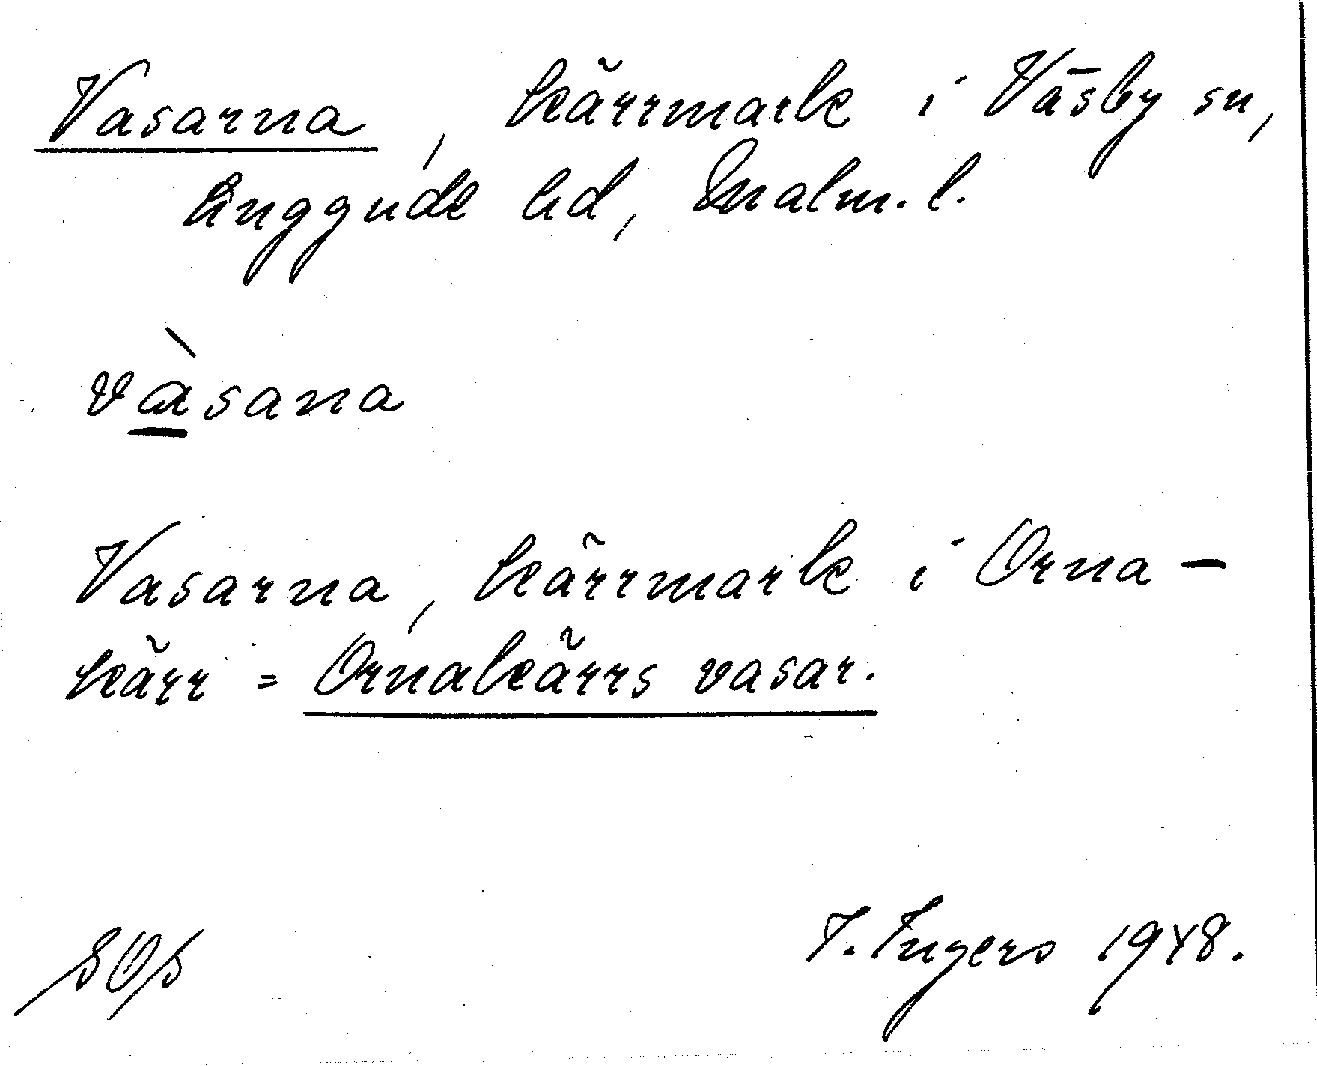 Vasarna, kärrmark i Väsby sn,
Luggude hd, Malm. l.
vàsana
Vasarna, kärrmark i Orna-
kärr = Ornakärrs vasar.
I. Ingers 1948.